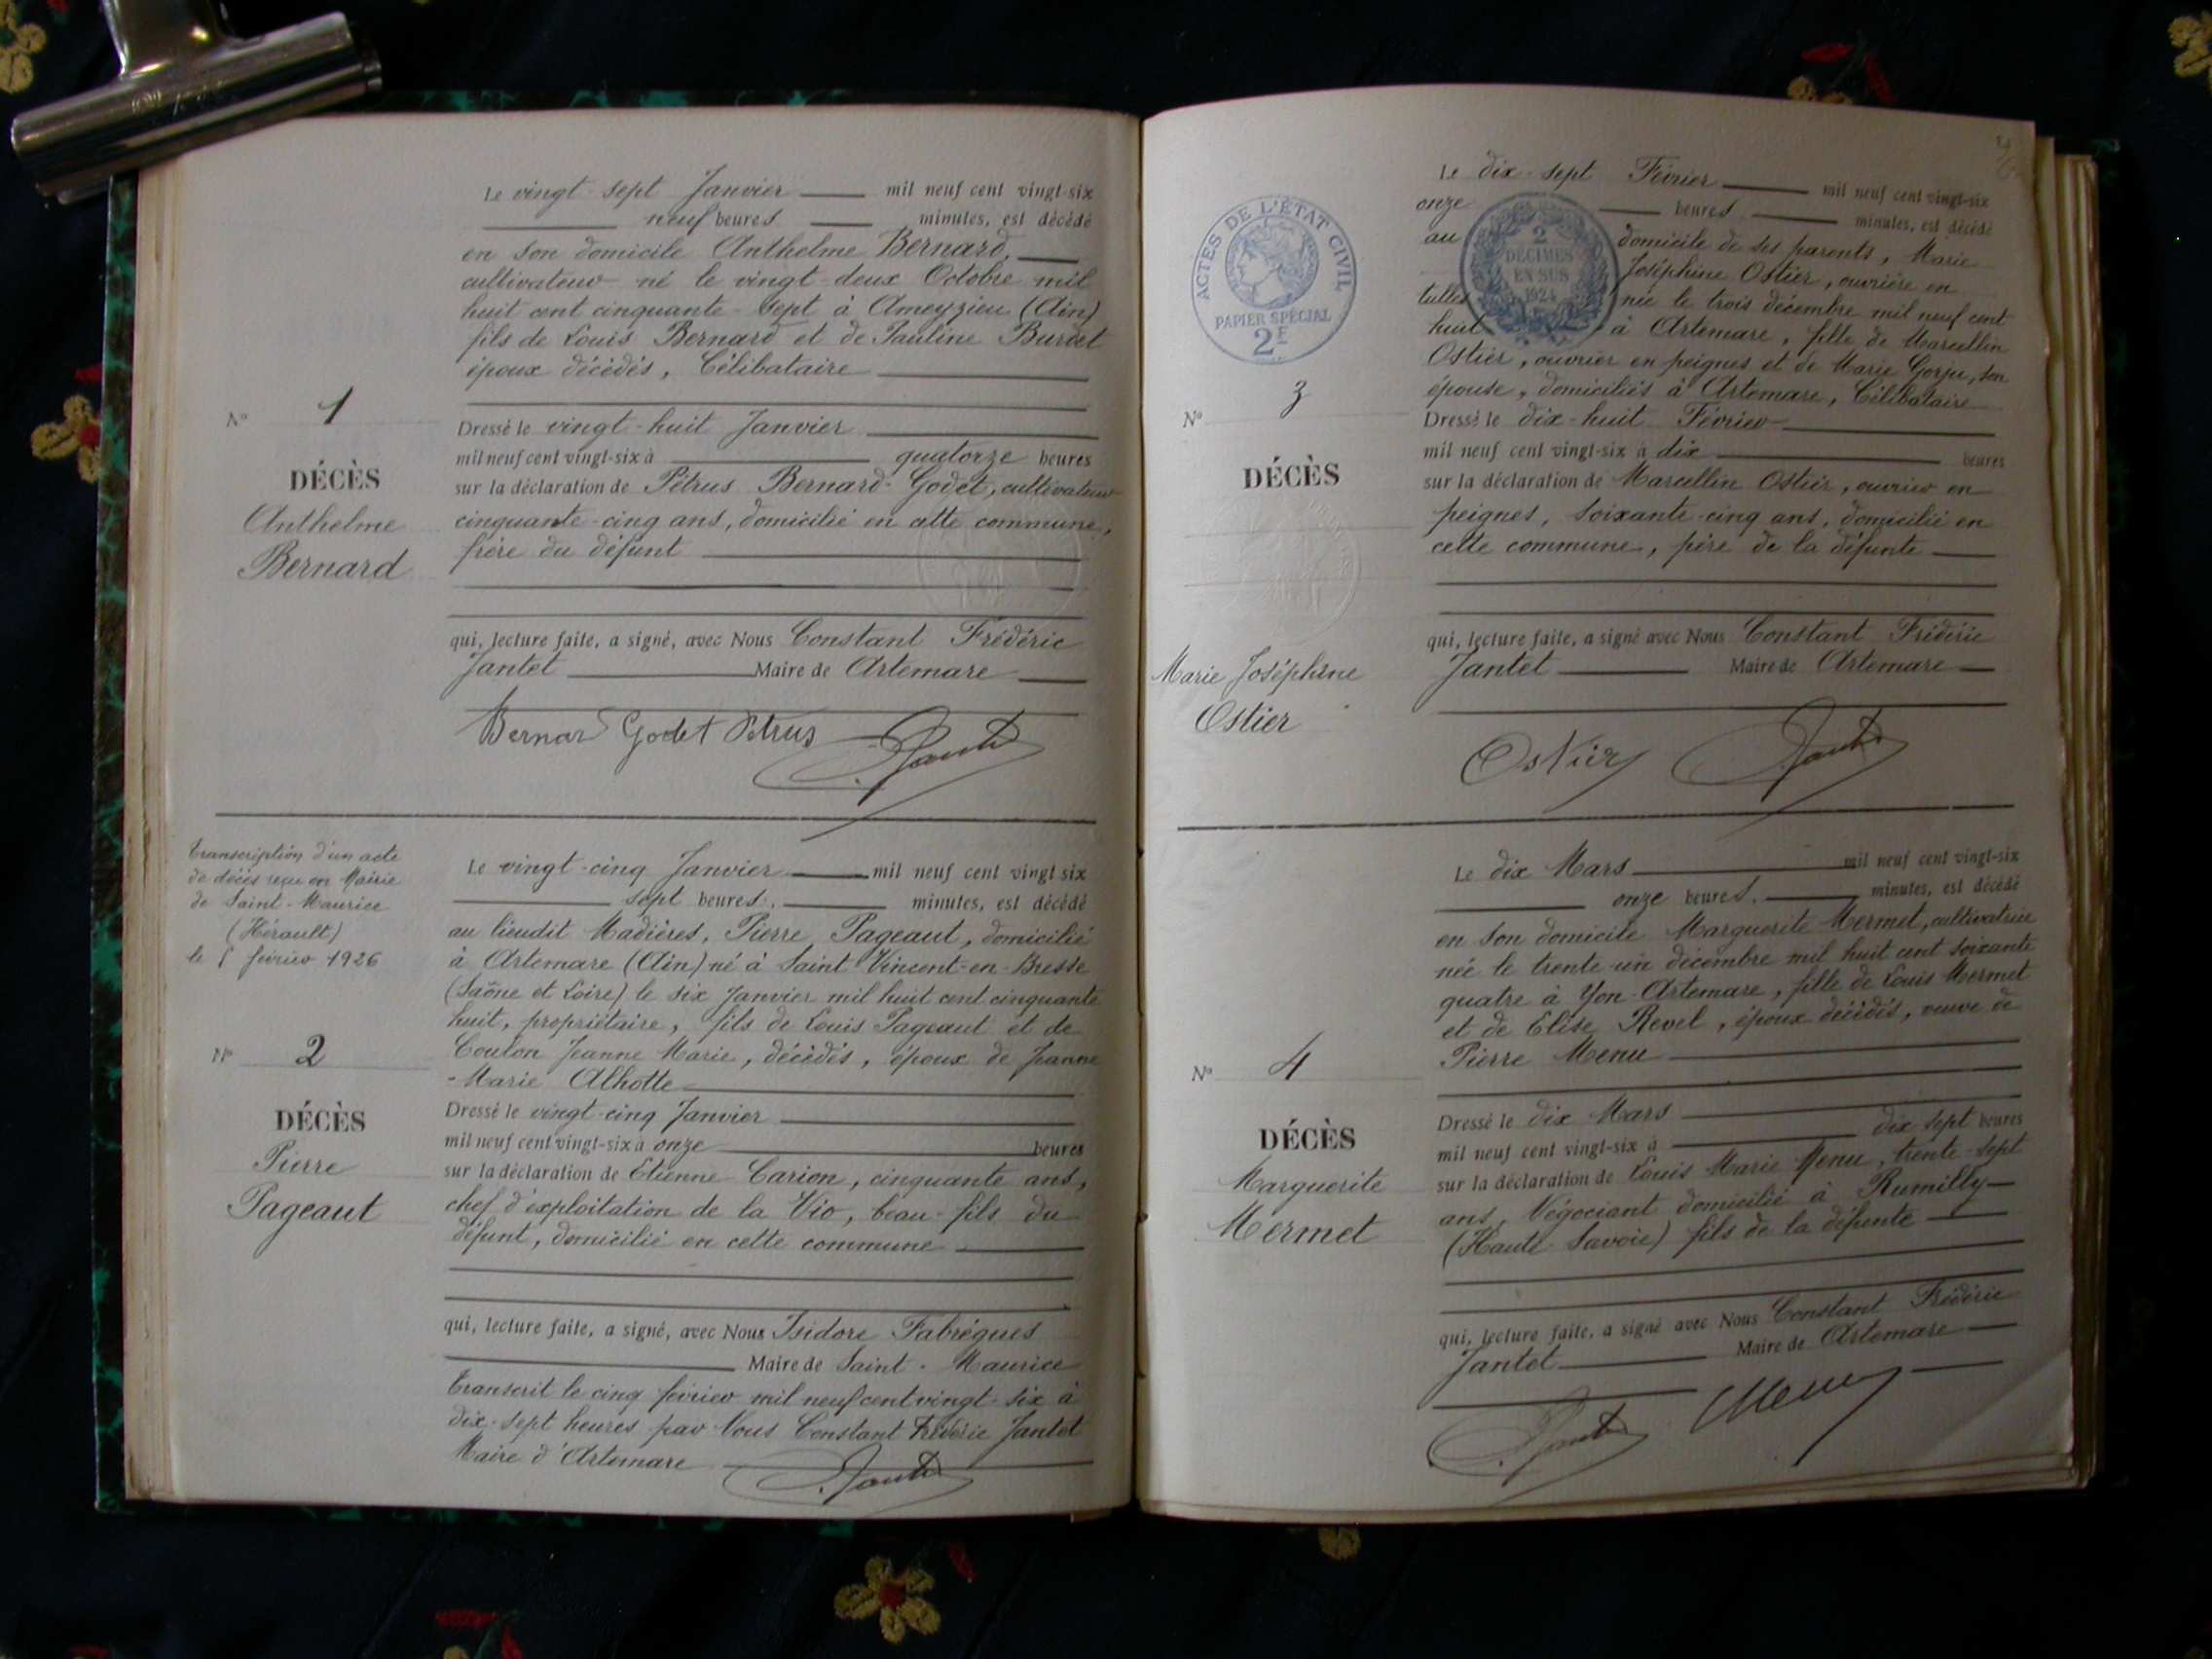 Le vingt-sept Janvier mil neuf cent vingt-six
neuf heures minutes, est décédé
en son domicile Anthelme Bernard,
cultivateur né le vingt-deux Octobre mil
huit cent cinquante-sept à Ameyzieu (Ain)
fils de Louis Bernard et de Pauline Burdet
époux décédés, Célibataire
No 1
Dressé le vingt-huit Janvier
mil neuf cent vingt-six à quatorze heures
DÉCÈS
sur la déclaration de Pétrus Bernard-Godet, cultivateur
Anthelme
cinquante-cinq ans, domicilié en cette commune,
Bernard
frère du défunt
qui, lecture faite, a signé, avec Nous Constant Frédéric
Jantet Maire de Artemare
Bernard Godet Petrus Jantet
Transcription d'un acte
de décès reçu en Mairie
de Saint-Maurice
(Hérault)
le 5 février 1926
Le vingt-cinq Janvier mil neuf cent vingt-six
sept heures, minutes, est décédé
au lieudit Madières, Pierre Pageaut, domicilié
à Artemare (Ain) né à Saint Vincent-en-Bresse
(Saône et Loire) le six Janvier mil huit cent cinquante
huit, propriétaire, fils de Louis Pageaut et de
Coulon Jeanne Marie, décédés, époux de Jeanne
-Marie Alhotte
No 2
DÉCÈS
Pierre
Pageaut
Dressé le vingt-cinq Janvier
mil neuf cent vingt-six à onze heures
sur la déclaration de Etienne Carion, cinquante ans,
chef d'exploitation de la Vio, beau-fils du
défunt, domicilié en cette commune
qui, lecture faite, a signé, avec Nous Isidore Fabrègues
Maire de Saint-Maurice
Transcrit le cinq février mil neuf cent vingt-six à
dix-sept heures par Nous Constant Frédéric Jantet
Maire d'Artemare
Jantet
ACTES DE L'ÉTAT CIVIL
PAPIER SPÉCIAL
2F
2
DÉCIMES
EN SUS
1924
Le dix-sept Février mil neuf cent vingt-six
onze heures minutes, est décédé
au domicile de ses parents, Marie
Joséphine Ostier, ouvrière en
tulles née le trois décembre mil neuf cent
huit à Artemare, fille de Marcellin
Ostier, ouvrier en peignes et de Marie Gorju, son
épouse, domiciliés à Artemare, Célibataire
No 3
DÉCÈS
Marie Joséphine
Ostier
Dressé le dix-huit Février
mil neuf cent vingt-six à dix heures
sur la déclaration de Marcellin Ostier, ouvrier en
peignes, soixante-cinq ans, domicilié en
cette commune, père de la défunte
qui, lecture faite, a signé avec Nous Constant Frédéric
Jantet Maire de Artemare
Ostier Jantet
Le dix Mars mil neuf cent vingt-six
onze heures, minutes, est décédé
en son domicile Marguerite Mermet, cultivatrice
née le trente-un décembre mil huit cent soixante
quatre à Yon-Artemare, fille de Louis Mermet
et de Elise Revel, époux décédés, veuve de
Pierre Menu
No 4
DÉCÈS
Marguerite
Mermet
Dressé le dix Mars
mil neuf cent vingt-six à dix sept heures
sur la déclaration de Louis Marie Menu, trente-sept
ans, Négociant domicilié à Rumilly
(Haute-Savoie) fils de la défunte
qui, lecture faite, a signé avec Nous Constant Frédéric
Jantet Maire de Artemare
Jantet Menu